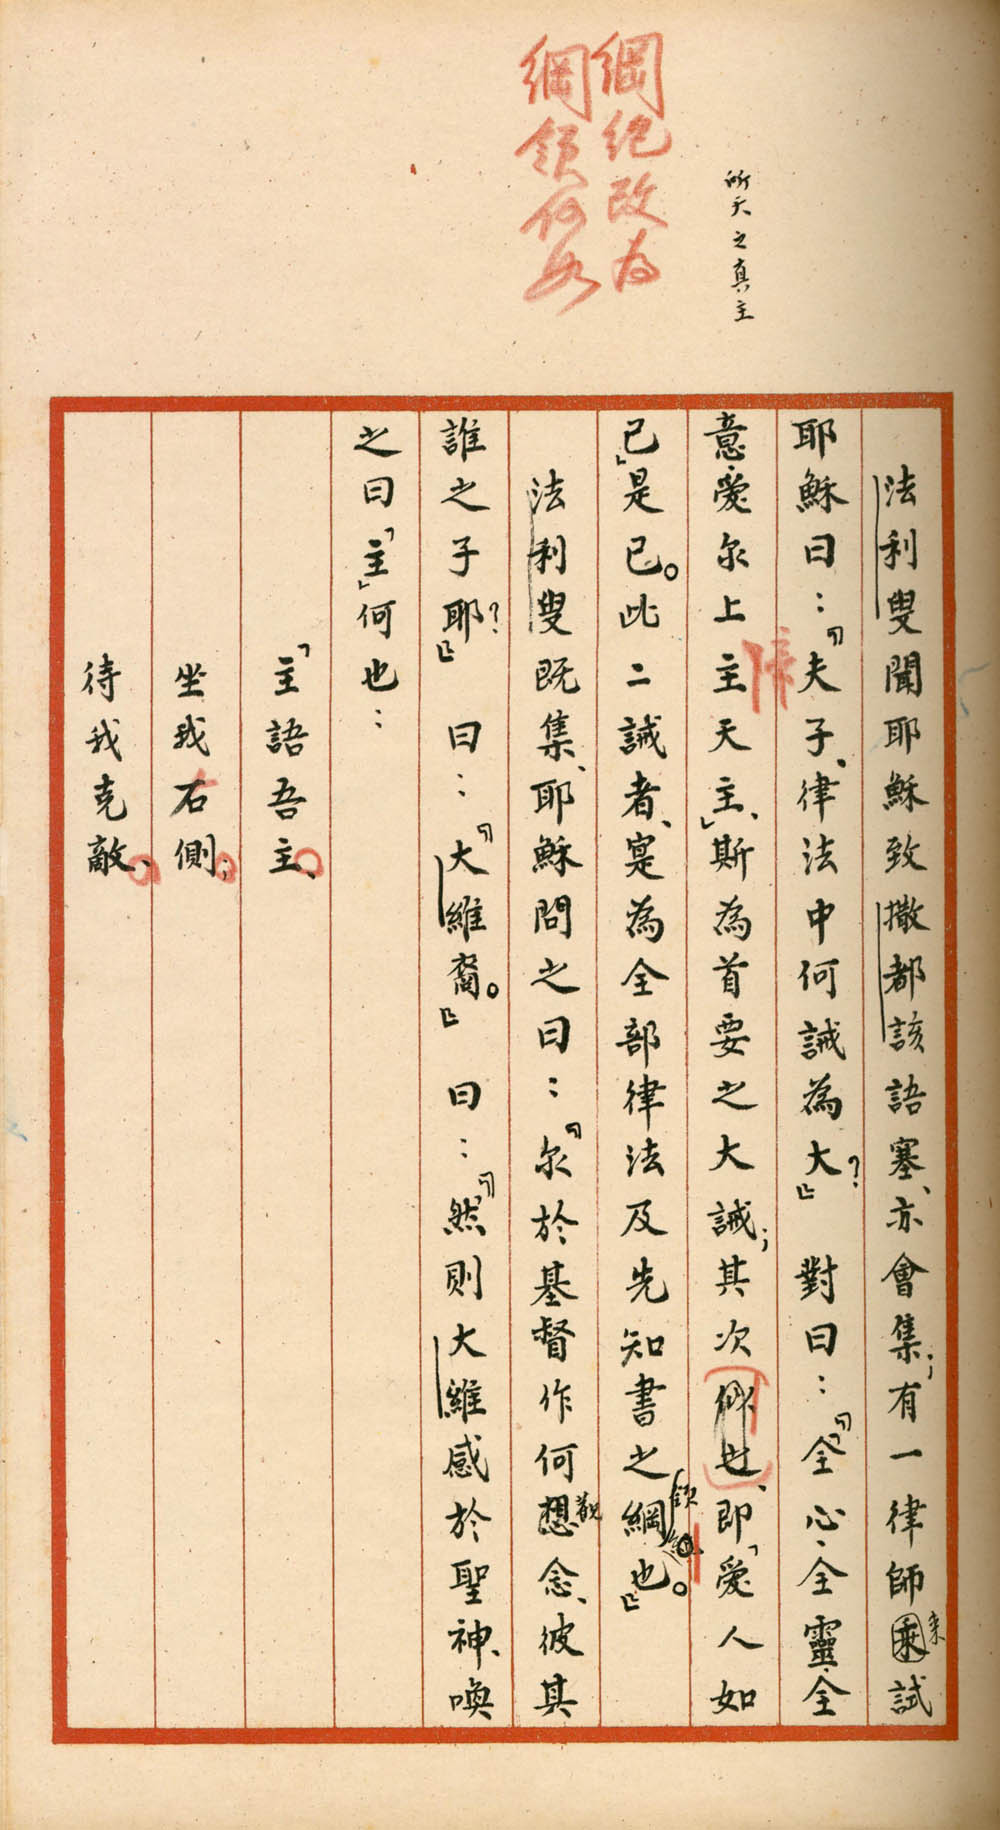 所天之真主
綱紀改為
綱領何如
法利叟聞耶穌致撒都該語塞、亦會集；有一律師乘來試
耶穌曰：『夫子、律法中何誡為大？』對曰：『「全心、全靈、全
意愛尔上主天主」、斯為首要之大誡；其次似也、即「愛人如
己」是已。此二誡者、寔為全部律法及先知書之綱領也。』
法利叟既集、耶穌問之曰：『尔於基督作何想觀念、彼其
誰之子耶？』曰：『大維裔。』曰：『然則大維感於聖神、喚
之曰「主」何也：
「主語吾主、
坐我右側；
待我克敵、